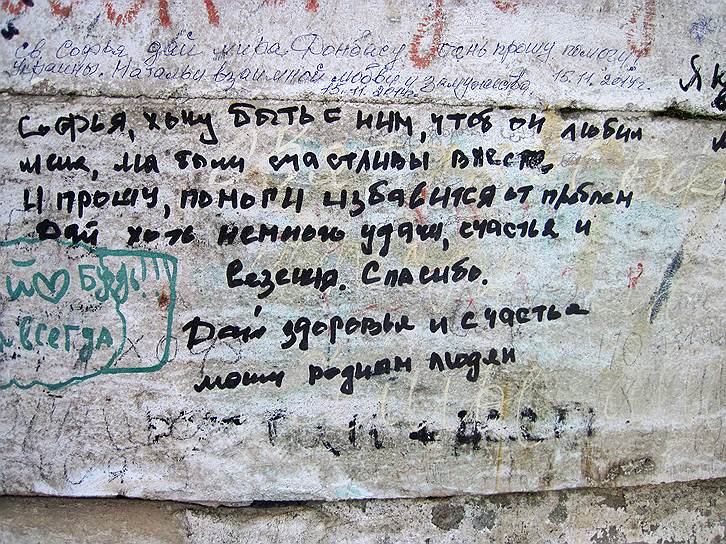 св. Софья дай мира Донбасу очень прошу помоги
Украины. Натальи взаимной любви и замужества. 15.11.2014г.
15.11.2014г.
Я
Софья, хочу быть с ним, чтоб он любил
меня, мы были счастливы вместе,
и прошу, помоги избавится от проблем
Дай хоть немного удачи, счастья и
везения. Спасибо.
й♡ Будь!!!
всегда
Дай здоровья и счастья
моим родным людям